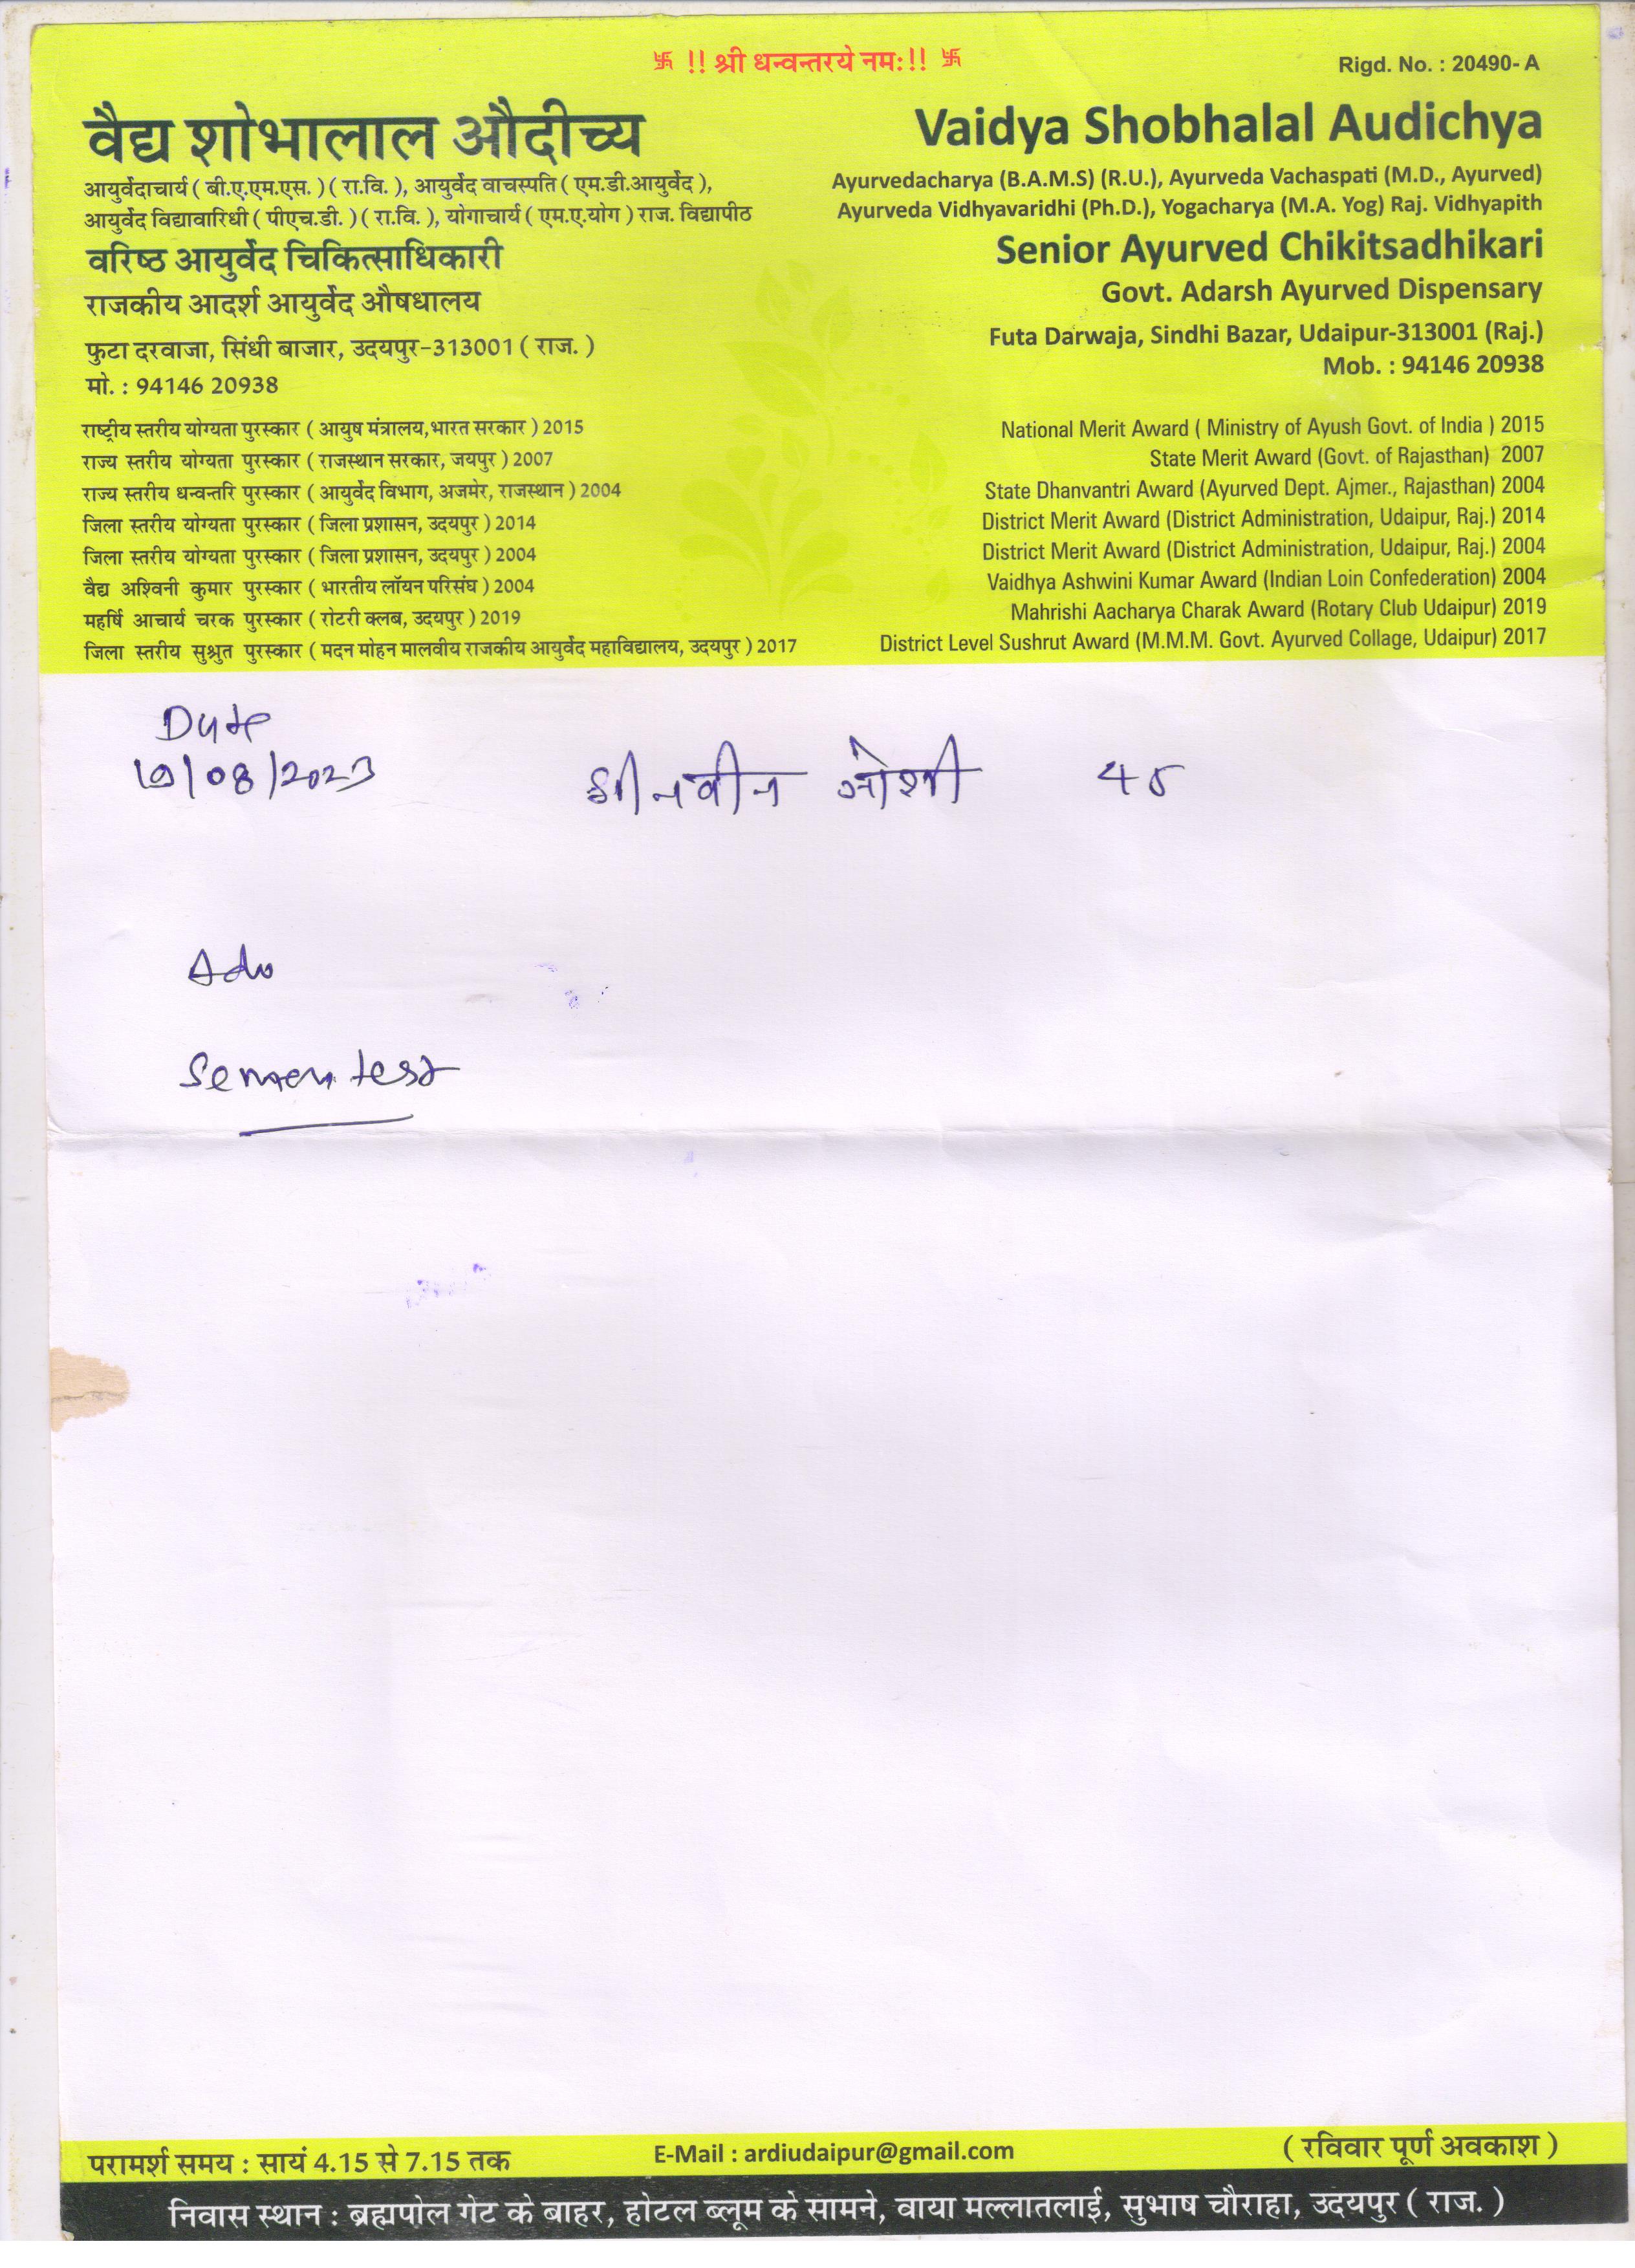 卐 !! श्री धन्वन्तरये नमः!! 卐
Rigd. No. : 20490- A
वैद्य शोभालाल औदीच्य
आयुर्वेदाचार्य ( बी.ए.एम.एस. ) ( रा.वि. ), आयुर्वेद वाचस्पति ( एम.डी.आयुर्वेद ),
आयुर्वेद विद्यावारिधी ( पीएच.डी. ) ( रा.वि. ), योगाचार्य ( एम.ए.योग ) राज. विद्यापीठ
वरिष्ठ आयुर्वेद चिकित्साधिकारी
राजकीय आदर्श आयुर्वेद औषधालय
फुटा दरवाजा, सिंधी बाजार, उदयपुर-313001 ( राज. )
मो. : 94146 20938
राष्ट्रीय स्तरीय योग्यता पुरस्कार ( आयुष मंत्रालय,भारत सरकार ) 2015
राज्य स्तरीय योग्यता पुरस्कार ( राजस्थान सरकार, जयपुर ) 2007
राज्य स्तरीय धन्वन्तरि पुरस्कार ( आयुर्वेद विभाग, अजमेर, राजस्थान ) 2004
जिला स्तरीय योग्यता पुरस्कार ( जिला प्रशासन, उदयपुर ) 2014
जिला स्तरीय योग्यता पुरस्कार ( जिला प्रशासन, उदयपुर ) 2004
वैद्य अश्विनी कुमार पुरस्कार ( भारतीय लॉयन परिसंघ ) 2004
महर्षि आचार्य चरक पुरस्कार ( रोटरी क्लब, उदयपुर ) 2019
जिला स्तरीय सुश्रुत पुरस्कार ( मदन मोहन मालवीय राजकीय आयुर्वेद महाविद्यालय, उदयपुर ) 2017
Vaidya Shobhalal Audichya
Ayurvedacharya (B.A.M.S) (R.U.), Ayurveda Vachaspati (M.D., Ayurved)
Ayurveda Vidhyavaridhi (Ph.D.), Yogacharya (M.A. Yog) Raj. Vidhyapith
Senior Ayurved Chikitsadhikari
Govt. Adarsh Ayurved Dispensary
Futa Darwaja, Sindhi Bazar, Udaipur-313001 (Raj.)
Mob. : 94146 20938
National Merit Award ( Ministry of Ayush Govt. of India ) 2015
State Merit Award (Govt. of Rajasthan) 2007
State Dhanvantri Award (Ayurved Dept. Ajmer., Rajasthan) 2004
District Merit Award (District Administration, Udaipur, Raj.) 2014
District Merit Award (District Administration, Udaipur, Raj.) 2004
Vaidhya Ashwini Kumar Award (Indian Loin Confederation) 2004
Mahrishi Aacharya Charak Award (Rotary Club Udaipur) 2019
District Level Sushrut Award (M.M.M. Govt. Ayurved Collage, Udaipur) 2017
Date
/08/2023
श्री नवीन जोशी
Adv
Semen test
परामर्श समय : सायं 4.15 से 7.15 तक
E-Mail : ardiudaipur@gmail.com
( रविवार पूर्ण अवकाश )
निवास स्थान : ब्रह्मपोल गेट के बाहर, होटल ब्लूम के सामने, वाया मल्लातलाई, सुभाष चौराहा, उदयपुर ( राज. )